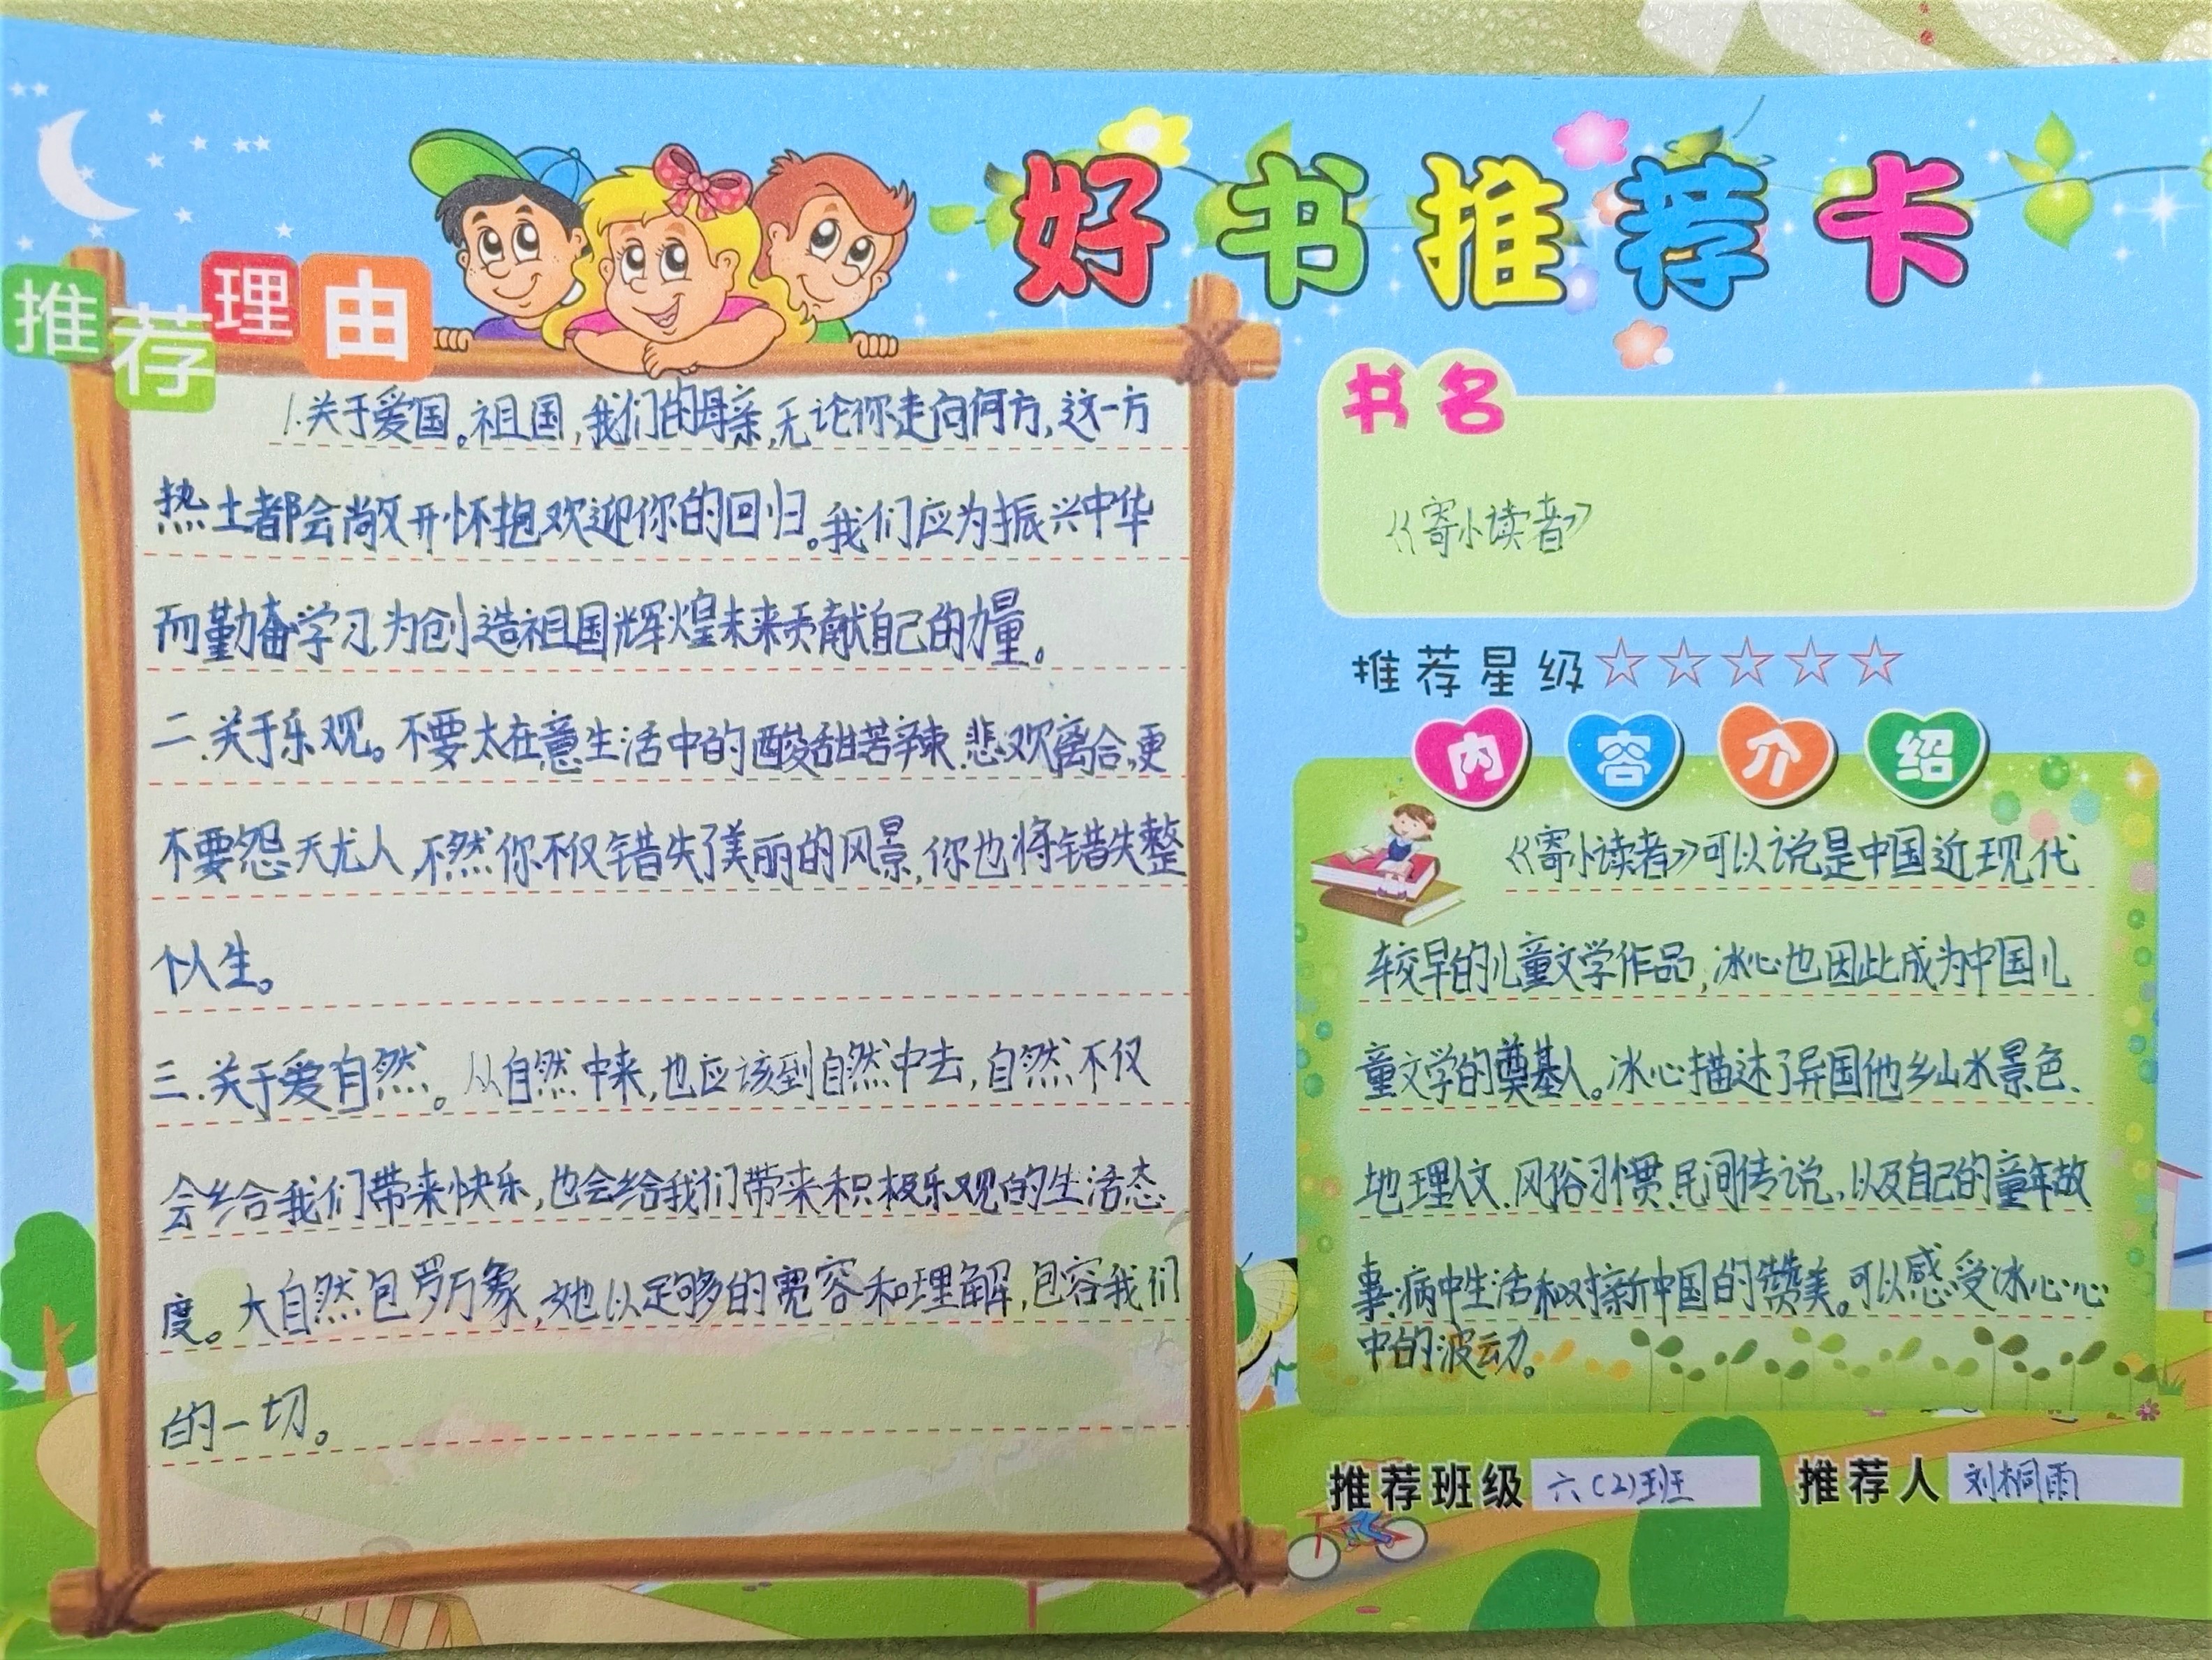 好书推荐卡
推荐理由
1.关于爱国。祖国,我们的母亲,无论你走向何方,这一方
热土都会敞开怀抱欢迎你的回归。我们应为振兴中华
而勤奋学习,为创造祖国辉煌未来贡献自己的力量。
二.关于乐观。不要太在意生活中的酸甜苦辣、悲欢离合,更
不要怨天尤人,不然你不仅错失了美丽的风景,你也将错失整
个人生。
三.关于爱自然。从自然中来,也应该到自然中去,自然不仅
会给我们带来快乐,也会给我们带来积极乐观的生活态
度。大自然包罗万象,她以足够的宽容和理解,包容我们
的一切。
书名
《寄小读者》
推荐星级☆☆☆☆☆
内容介绍
《寄小读者》可以说是中国近现代
较早的儿童文学作品,冰心也因此成为中国儿
童文学的奠基人。冰心描述了异国他乡山水景色、
地理人文、风俗习惯、民间传说,以及自己的童年故
事、病中生活和对新中国的赞美。可以感受冰心心
中的波动。
推荐班级 六(2)班 推荐人 刘桐雨